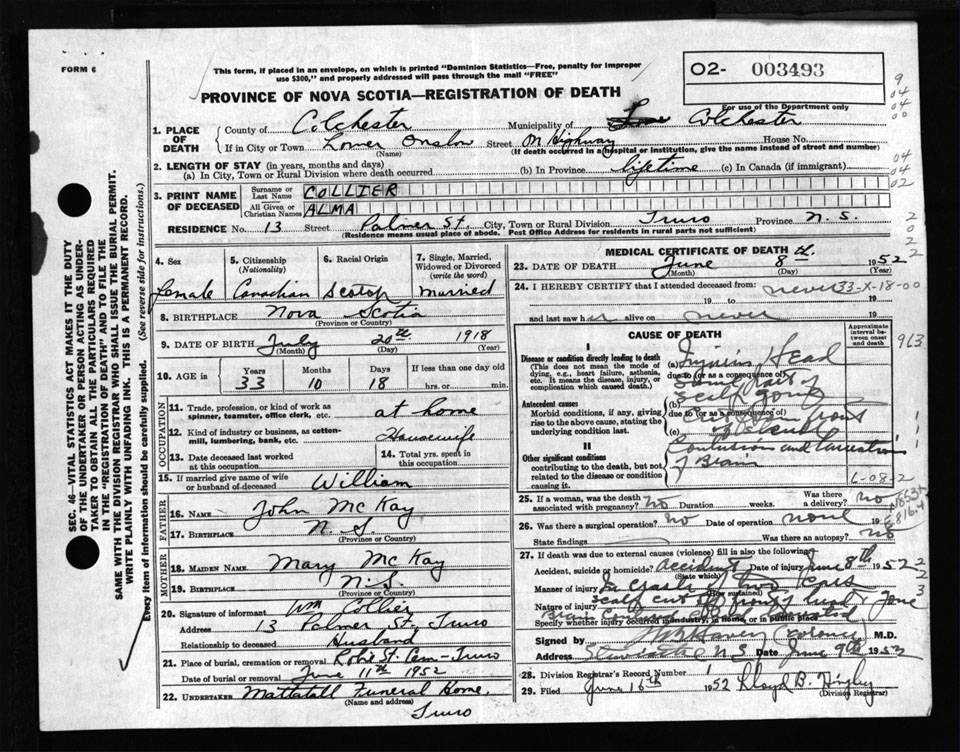 FORM 6
This form, if placed in an envelope, on which is printed "Dominion Statistics—Free, penalty for improper
use $300," and properly addressed will pass through the mail "FREE"
O2- 003493
PROVINCE OF NOVA SCOTIA—REGISTRATION OF DEATH
For use of the Department only
1. PLACE OF DEATH
County of Colchester Municipality of Colchester
If in City or Town Lower Onslow Street On Highway House No.
(Name) (If death occurred in a hospital or institution, give the name instead of street and number)
2. LENGTH OF STAY (in years, months and days)
(a) In City, Town or Rural Division where death occurred (b) In Province lifetime (c) In Canada (if immigrant)
3. PRINT NAME OF DECEASED
Surname or Last Name COLLIER
All Given or Christian Names ALMA
RESIDENCE No. 13 Street Palmer St. City, Town or Rural Division Truro Province N.S.
(Residence means usual place of abode. Post Office Address for residents in rural parts not sufficient)
4. Sex
Female
5. Citizenship (Nationality)
Canadian
6. Racial Origin
Scotch
7. Single, Married, Widowed or Divorced (write the word)
Married
8. BIRTHPLACE Nova Scotia
(Province or Country)
9. DATE OF BIRTH July 20th 1918
(Month) (Day) (Year)
10. AGE in Years Months Days If less than one day old
33 10 18 hrs. or min.
OCCUPATION
11. Trade, profession, or kind of work as spinner, teamster, office clerk, etc. at home
12. Kind of industry or business, as cotton-mill, lumbering, bank, etc. Housewife
13. Date deceased last worked at this occupation
14. Total yrs. spent in this occupation
15. If married give name of wife or husband of deceased William
FATHER
16. NAME John McKay
17. BIRTHPLACE N.S.
(Province or Country)
MOTHER
18. MAIDEN NAME Mary McKay
19. BIRTHPLACE N.S.
(Province or Country)
20. Signature of informant Wm Collier
Address 13 Palmer St. Truro
Relationship to deceased Husband
21. Place of burial, cremation or removal Robie St. Cem-Truro
Date of burial or removal June 11th 1952
22. UNDERTAKER Mattatall Funeral Home,
(Name and address)
Truro
MEDICAL CERTIFICATE OF DEATH
23. DATE OF DEATH June 8th 1952
(Month) (Day) (Year)
24. I HEREBY CERTIFY that I attended deceased from: never 33-X-18-00
19 to 19
and last saw her alive on never 19
CAUSE OF DEATH
Approximate interval between onset and death
963
I
Disease or condition directly leading to death
(This does not mean the mode of dying, e.g., heart failure, asthenia, etc. It means the disease, injury, or complication which caused death.)
(a) Injuries Head
due to (or as a consequence of)
Antecedent causes
Morbid conditions, if any, giving rise to the above cause, stating the underlying condition last.
(b) scalp gone
due to (or as a consequence of)
(c)
II
Other significant conditions
contributing to the death, but not related to the disease or condition causing it.
Contusion and Laceration
of Brain
6-08-2
25. If a woman, was the death associated with pregnancy? no Duration weeks. Was there a delivery? no
26. Was there a surgical operation? no Date of operation none 19
State findings Was there an autopsy? no
27. If death was due to external causes (violence) fill in also the following:
Accident, suicide or homicide? accident Date of injury June 8th 1952
(State which)
Manner of injury In crash of two cars
(How sustained)
Nature of injury
Specify whether injury occurred in industry, in home, or in public place
Signed by Harvey Coroner M.D.
Address Stewiacke N S Date June 9th 1952
28. Division Registrar's Record Number 1
29. Filed June 16th 1952 Lloyd B.
(Division Registrar)
SEC. 46—VITAL STATISTICS ACT MAKES IT THE DUTY
OF THE UNDERTAKER OR PERSON ACTING AS UNDER-
TAKER TO OBTAIN ALL THE PARTICULARS REQUIRED
IN THE "REGISTRATION OF DEATH" AND TO FILE THE
SAME WITH THE DIVISION REGISTRAR WHO SHALL ISSUE THE BURIAL PERMIT.
WRITE PLAINLY WITH UNFADING INK. THIS IS A PERMANENT RECORD.
Every item of information should be carefully supplied. (See reverse side for instructions.)